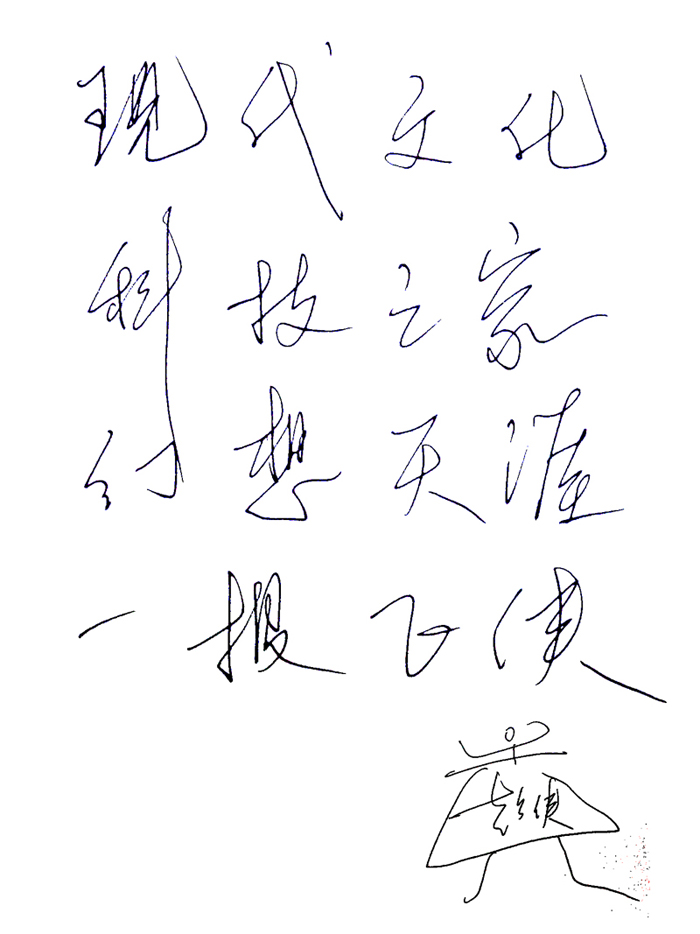 現代文化
科技之家
幻想天涯
一报飞使